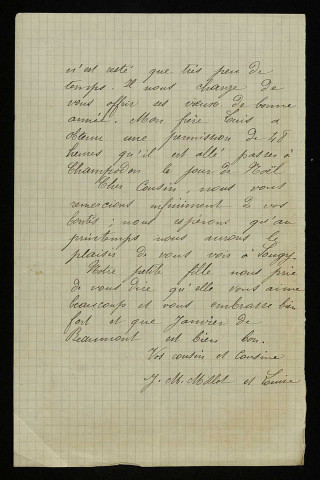 n'est resté que très peu de
temps. Il nous charge de
vous offrir ses vœux de bonne
année. Mon frère Louis a
obtenu une permission de 48
heures qu'il est allé passer à
Champodon le jour de Noël
Cher Cousin, nous vous
remercions infiniment de vos
bontés ; nous espérons qu'au
printemps nous aurons le
plaisir de vous voir à Lougy.
Notre petite fille nous prie
de vous dire qu'elle vous aime
beaucoup et vous embrasse bien
fort et que Janvier de
Beaumont est bien bon.
Vos cousin et cousine
J. M. Millot et Louise